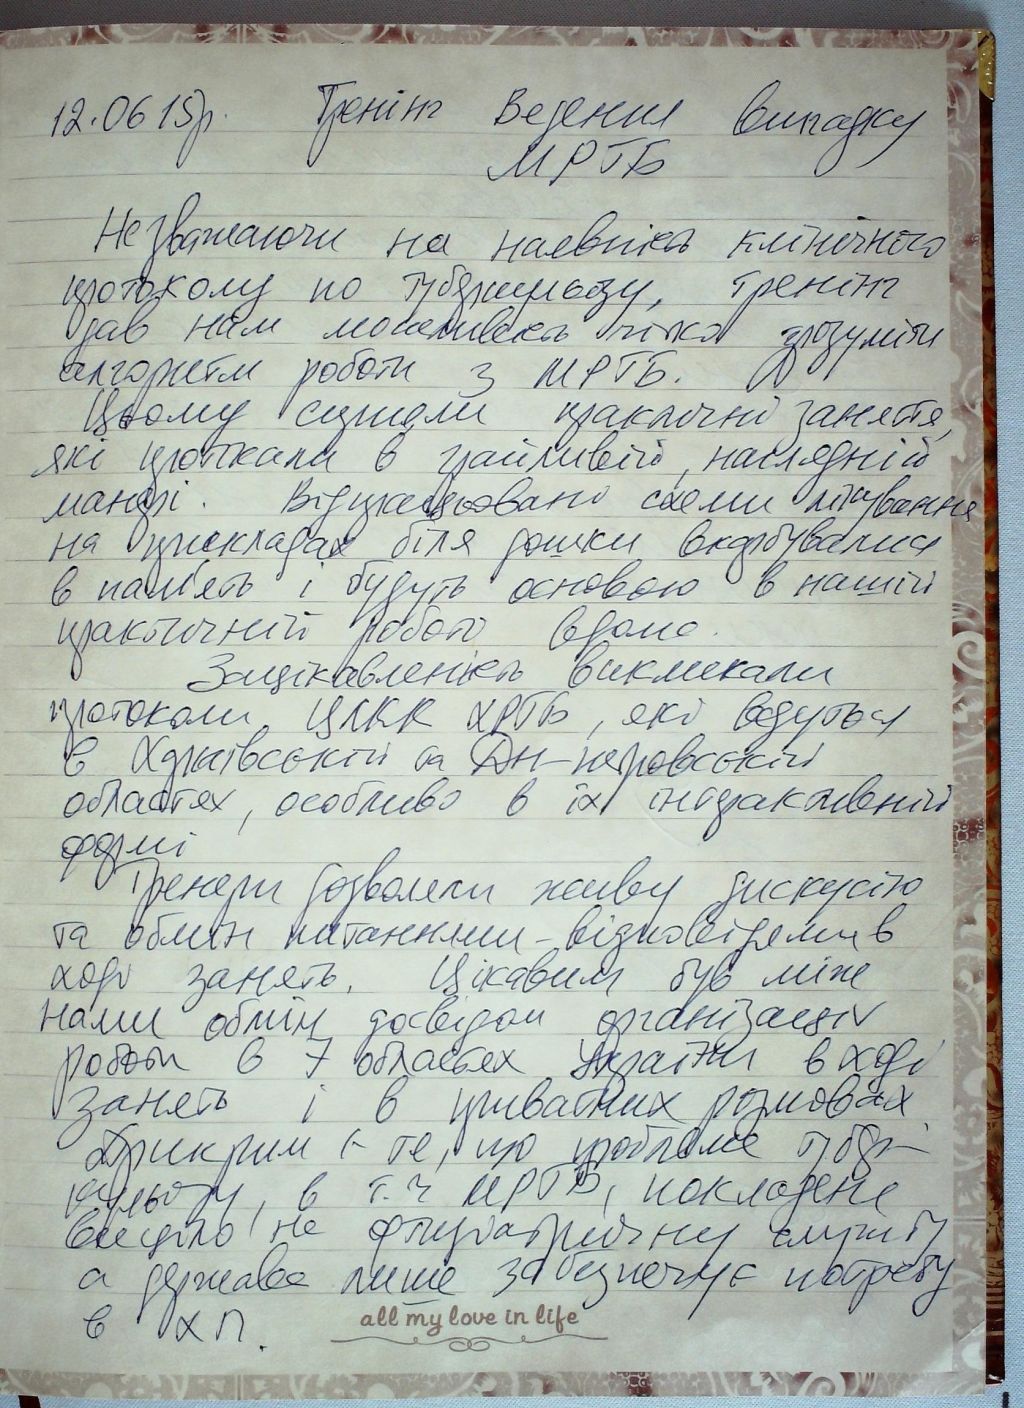 12.06 15р. Тренінг Ведення випадку
МРТБ
Незважаючи на наявність клінічного
протоколу по туберкульозу, тренінг
дав нам можливість чітко зрозуміти
алгоритм роботи з МРТБ.
Цьому сприяли практичні заняття,
які протікали в грайливій, наглядній
манері. Відпрацьовані схеми лікування
на прикладах біля дошки вкарбувались
в пам'ять і будуть основою в нашій
практичній роботі вдома.
Зацікавленість викликали
протоколи ЦЛКК ХРТБ, які ведуться
в Харківській та Дн-петровській
областях, особливо в їх інтерактивній
формі
Тренери дозволяли живу дискусію
та обмін питаннями-відповідями в
ході занять. Цікавим був між
нами обмін досвідом організації
роботи в 7 областях України в ході
занять і в приватних розмовах
Прикрим є те, що проблема тубер-
кульозу, в т.ч МРТБ, покладена
виключно на фтизіатричну службу
а держава лише забезпечує потребу
в ХП.
all my love in life